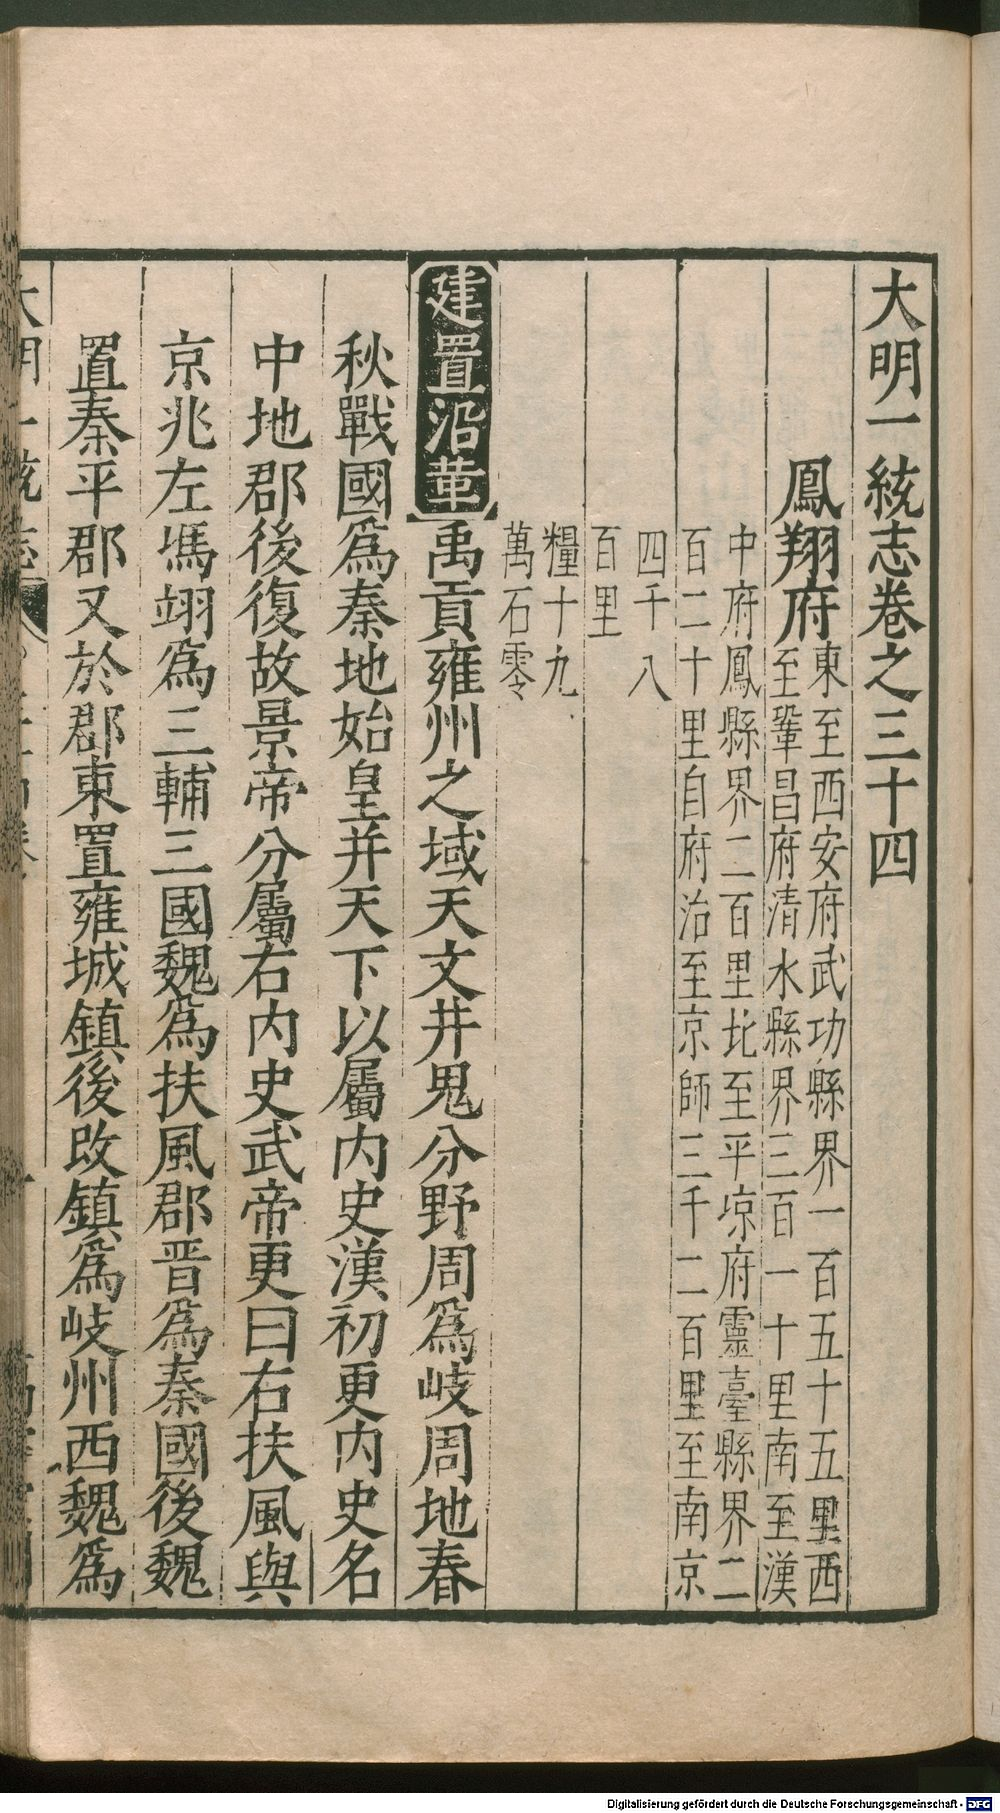 大明一統志卷之三十四
鳳翔府
東至西安府武功縣界一百五十五里西
至鞏昌府清水縣界三百一十里南至漢
中府鳳縣界二百里北至平涼府靈臺縣界二
百二十里自府治至京師三千二百里至南京
四千八
百里
糧十九
萬石零
建置沿革禹貢雍州之域天文井鬼分野周為岐周地春
秋戰國為秦地始皇并天下以屬內史漢初更內史名
中地郡後復故景帝分屬右內史武帝更曰右扶風與
京兆左馮翊為三輔三國魏為扶風郡晋為秦國後魏
置秦平郡又於郡東置雍城鎮後改鎮為岐州西魏為
Digitalisierung gefördert durch die Deutsche Forschungsgemeinschaft - DFG